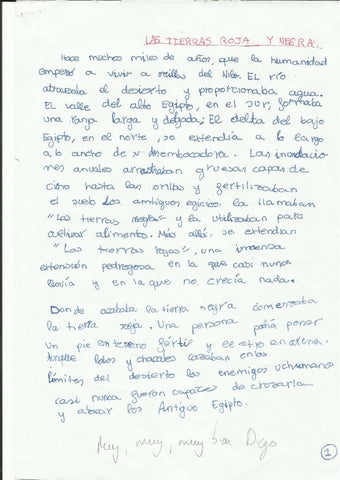 LAS TIERRAS ROJA Y NEGRA.
Hace muchos miles de años, que la humanidad
empezó a vivir a orillas del Nilo. EL río
atravesaba el desierto y proporcionaba agua.
El valle del alto Egipto, en el sur, formaba
una franja larga y delgada; El delta del bajo
Egipto, en el norte, se extendía a lo largo
a lo ancho de su desembocadora. Las inundacio-
nes anuales arrastraban gruesas capas de
cieno hasta las orillas y fertilizaban
el suelo. Los antiguos egipcios la llamaban
"Las tierras negras" y la utilizaban para
cultivar alimentos. Más allá. se extendían
"Las tierras rojas", una inmensa
extención pedregosa en la que casi nunca
llovía y en la que no crecía nada.
Donde acababa la tierra negra comenzaba
la tierra roja. Una persona podía poner
un pie en terreno fértil y el otro en arena.
Aunque lobos y chacales cazaban en los
límites del desierto los enemigos humanos
casi nunca fueron capaces de cruzarlo
y atacar los Antiguo Egipto.
Muy, muy, muy bien Diego
1